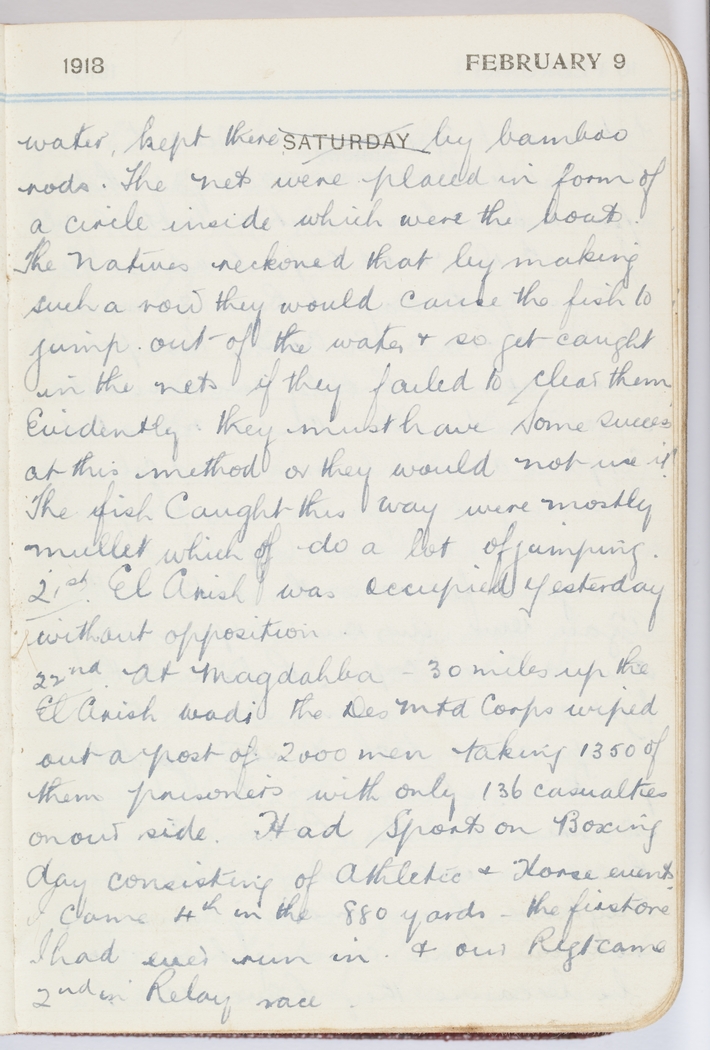 1918 FEBRUARY 9
water, kept there SATURDAY by bamboo
rods. The nets were placed in form of
a circle inside which were the boats.
The Natives reckoned that by making
such a row they would cause the fish to
jump out of the water & so get caught
in the nets if they failed to clear them
Evidently they must have some success
at this method or they would not use it
The fish Caught this way were mostly
mullet which do a lot of jumping.
21st El Arish was occupied yesterday
without opposition.
22nd At Magdahba - 30 miles up the
El Arish wadi the Des Mtd Corps wiped
out a post of 2000 men taking 1350 of
them prisoners with only 136 casualties
on our side. Had Sports on Boxing
day consisting of Athletic & Horse events
I Came 4th in the 880 yards - the first one
I had ever run in. & our Regt came
2nd in Relay race.